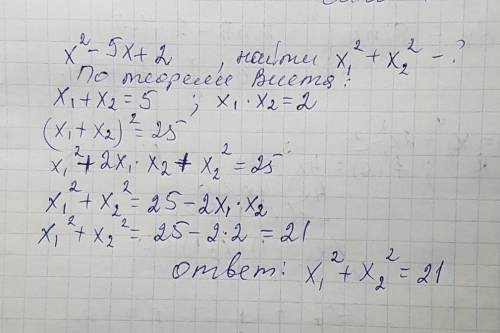 x² - 5x + 2 , найти x₁² + x₂² - ?
По теореме Виета:
x₁ + x₂ = 5 ; x₁ · x₂ = 2
(x₁ + x₂)² = 25
x₁² + 2x₁ · x₂ + x₂² = 25
x₁² + x₂² = 25 - 2x₁ · x₂
x₁² + x₂² = 25 - 2·2 = 21
ответ: x₁² + x₂² = 21